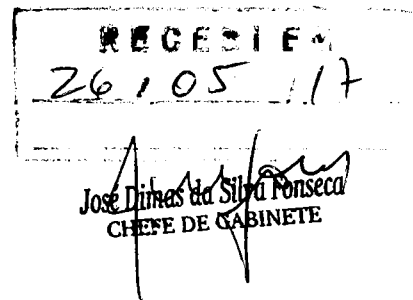 RECEBI EM
26 / 05 / 17
José Dimas da Silva Fonseca
CHEFE DE GABINETE